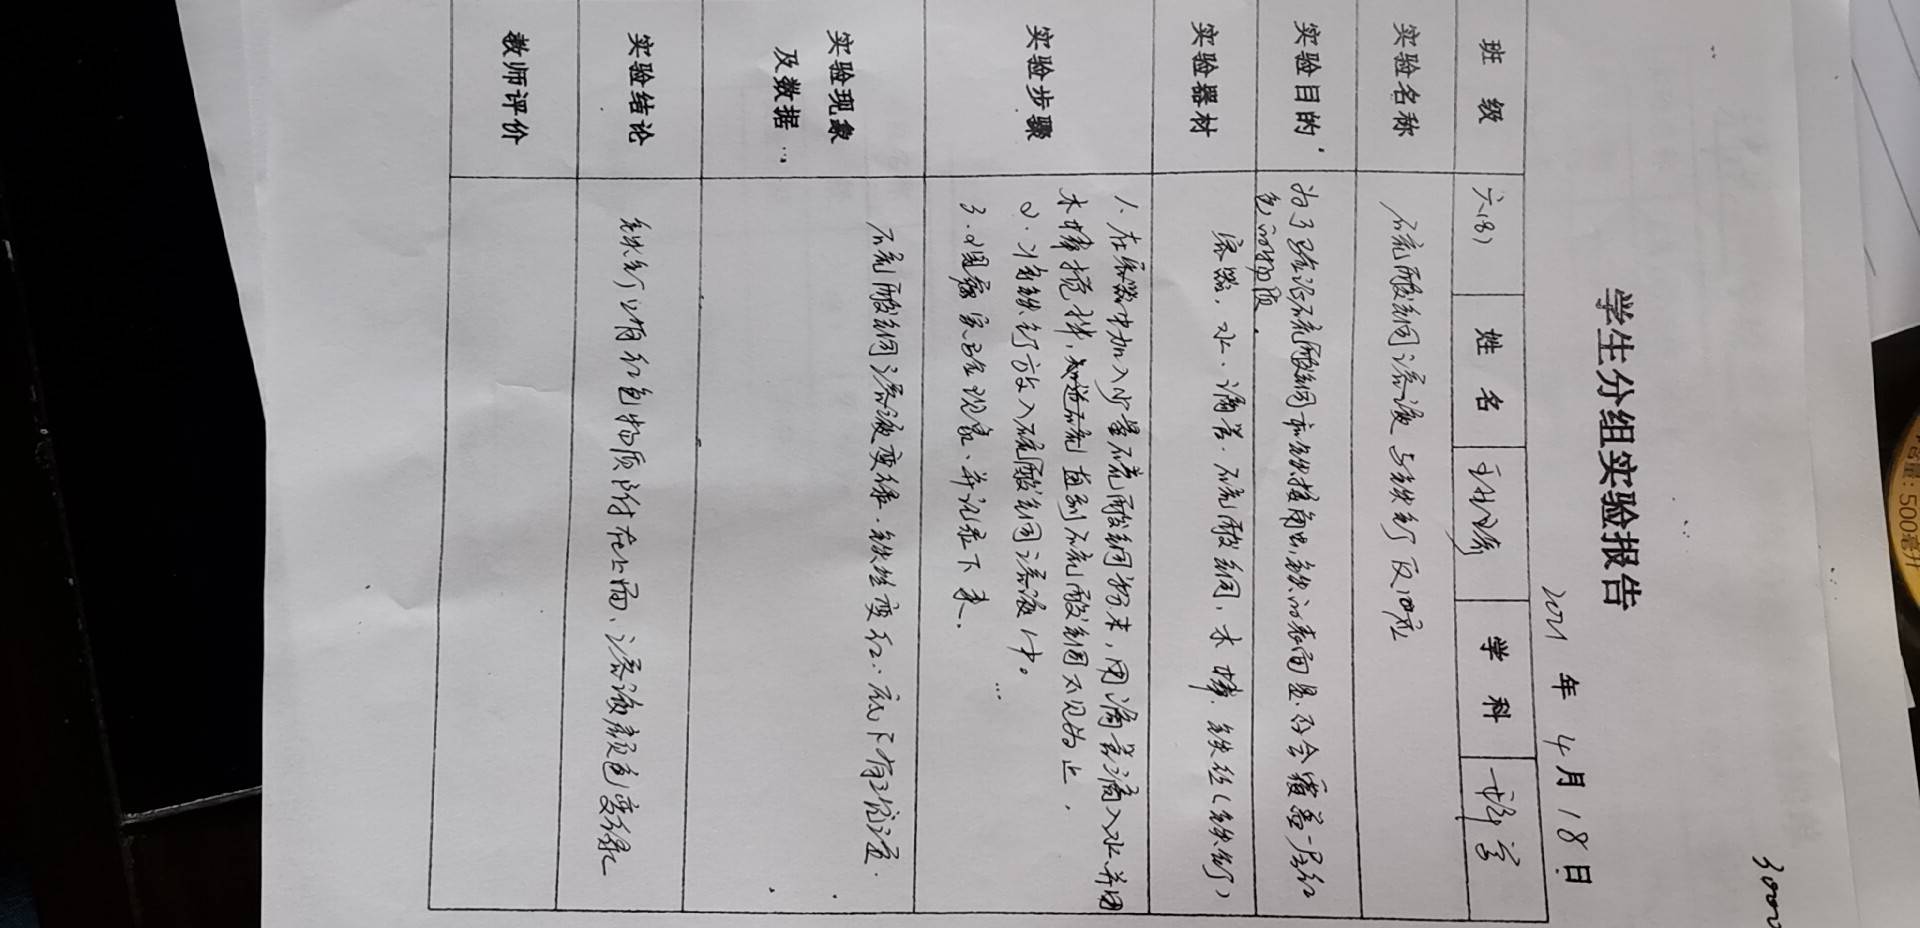 30000
学生分组实验报告
2021 年 4 月 18 日
班 级 六(8) 姓 名 学 科 科学
实验名称 硫酸铜溶液与铁钉反应
实验目的 为了验证硫酸铜和铁接触出,铁的表面是否会覆盖一层红
色的物质.
实验器材 容器,水.滴管.硫酸铜,木棒.铁丝(铁钉)
实验步骤 1.在容器中加入少量硫酸铜粉末,用滴管滴入水,并用
木棒搅拌,直到硫酸铜不见为止.
2.将铁钉放入硫酸铜溶液中。
3.观察实验现象、并记录下来.
实验现象
及数据
硫酸铜溶液变绿.铁丝变红.底下有沉渣.
实验结论 铁钉上有红色物质附在上面、溶液颜色变绿
教师评价
容量:500毫升